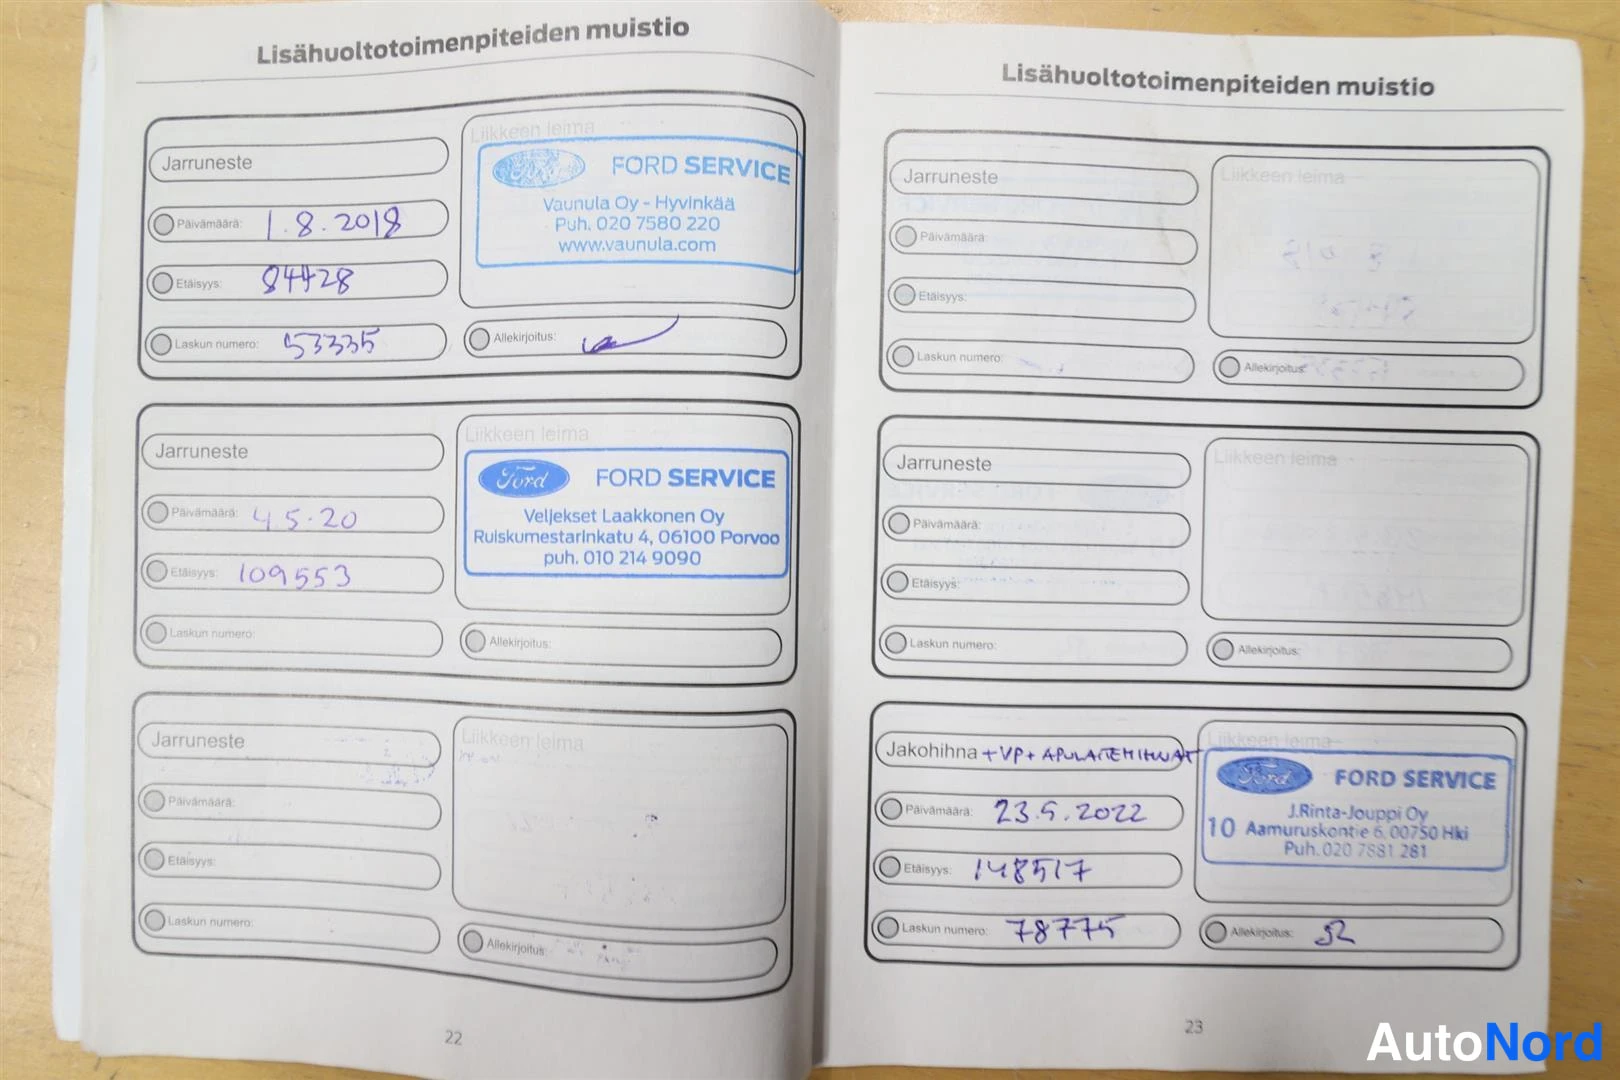 Lisähuoltotoimenpiteiden muistio
Jarruneste
Päivämäärä: 1.8.2018
Etäisyys: 84428
Laskun numero: 53335
Liikkeen leima
Ford FORD SERVICE
Vaunula Oy - Hyvinkää
Puh. 020 7580 220
www.vaunula.com
Allekirjoitus:
Jarruneste
Päivämäärä: 4.5.20
Etäisyys: 109553
Laskun numero:
Liikkeen leima
Ford FORD SERVICE
Veljekset Laakkonen Oy
Ruiskumestarinkatu 4, 06100 Porvoo
puh. 010 214 9090
Allekirjoitus:
Jarruneste
Päivämäärä:
Etäisyys:
Laskun numero:
Liikkeen leima
Allekirjoitus:
22
Lisähuoltotoimenpiteiden muistio
Jarruneste
Päivämäärä:
Etäisyys:
Laskun numero:
Liikkeen leima
Allekirjoitus:
Jarruneste
Päivämäärä:
Etäisyys:
Laskun numero:
Liikkeen leima
Allekirjoitus:
Jakohihna + VP + APULAITEHIHNAT
Päivämäärä: 23.5.2022
Etäisyys: 148517
Laskun numero: 78775
Liikkeen leima
Ford FORD SERVICE
J.Rinta-Jouppi Oy
10 Aamuruskontie 6, 00750 Hki
Puh. 020 7881 281
Allekirjoitus:
23
AutoNord